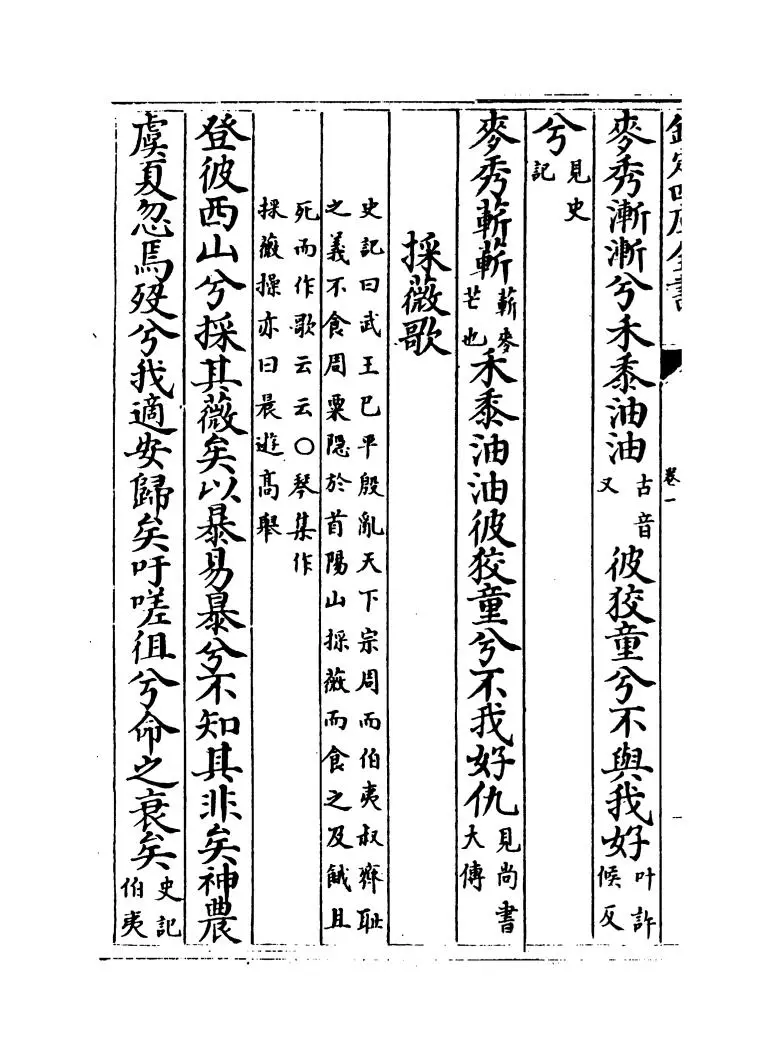 欽定四庫全書 卷一
麥秀漸漸兮禾黍油油古音又彼狡童兮不與我好叶許候反
兮見史記
麥秀蔪蔪蔪麥芒也禾黍油油彼狡童兮不我好仇見尚書大傳
採薇歌
史記曰武王已平殷亂天下宗周而伯夷叔齊耻
之義不食周粟隠於首陽山採薇而食之及餓且
死而作歌云云○琴集作
採薇操亦曰晨遊髙舉
登彼西山兮採其薇矣以暴易暴兮不知其非矣神農
虞夏忽焉殁兮我適安歸矣吁嗟徂兮命之衰矣史記伯夷